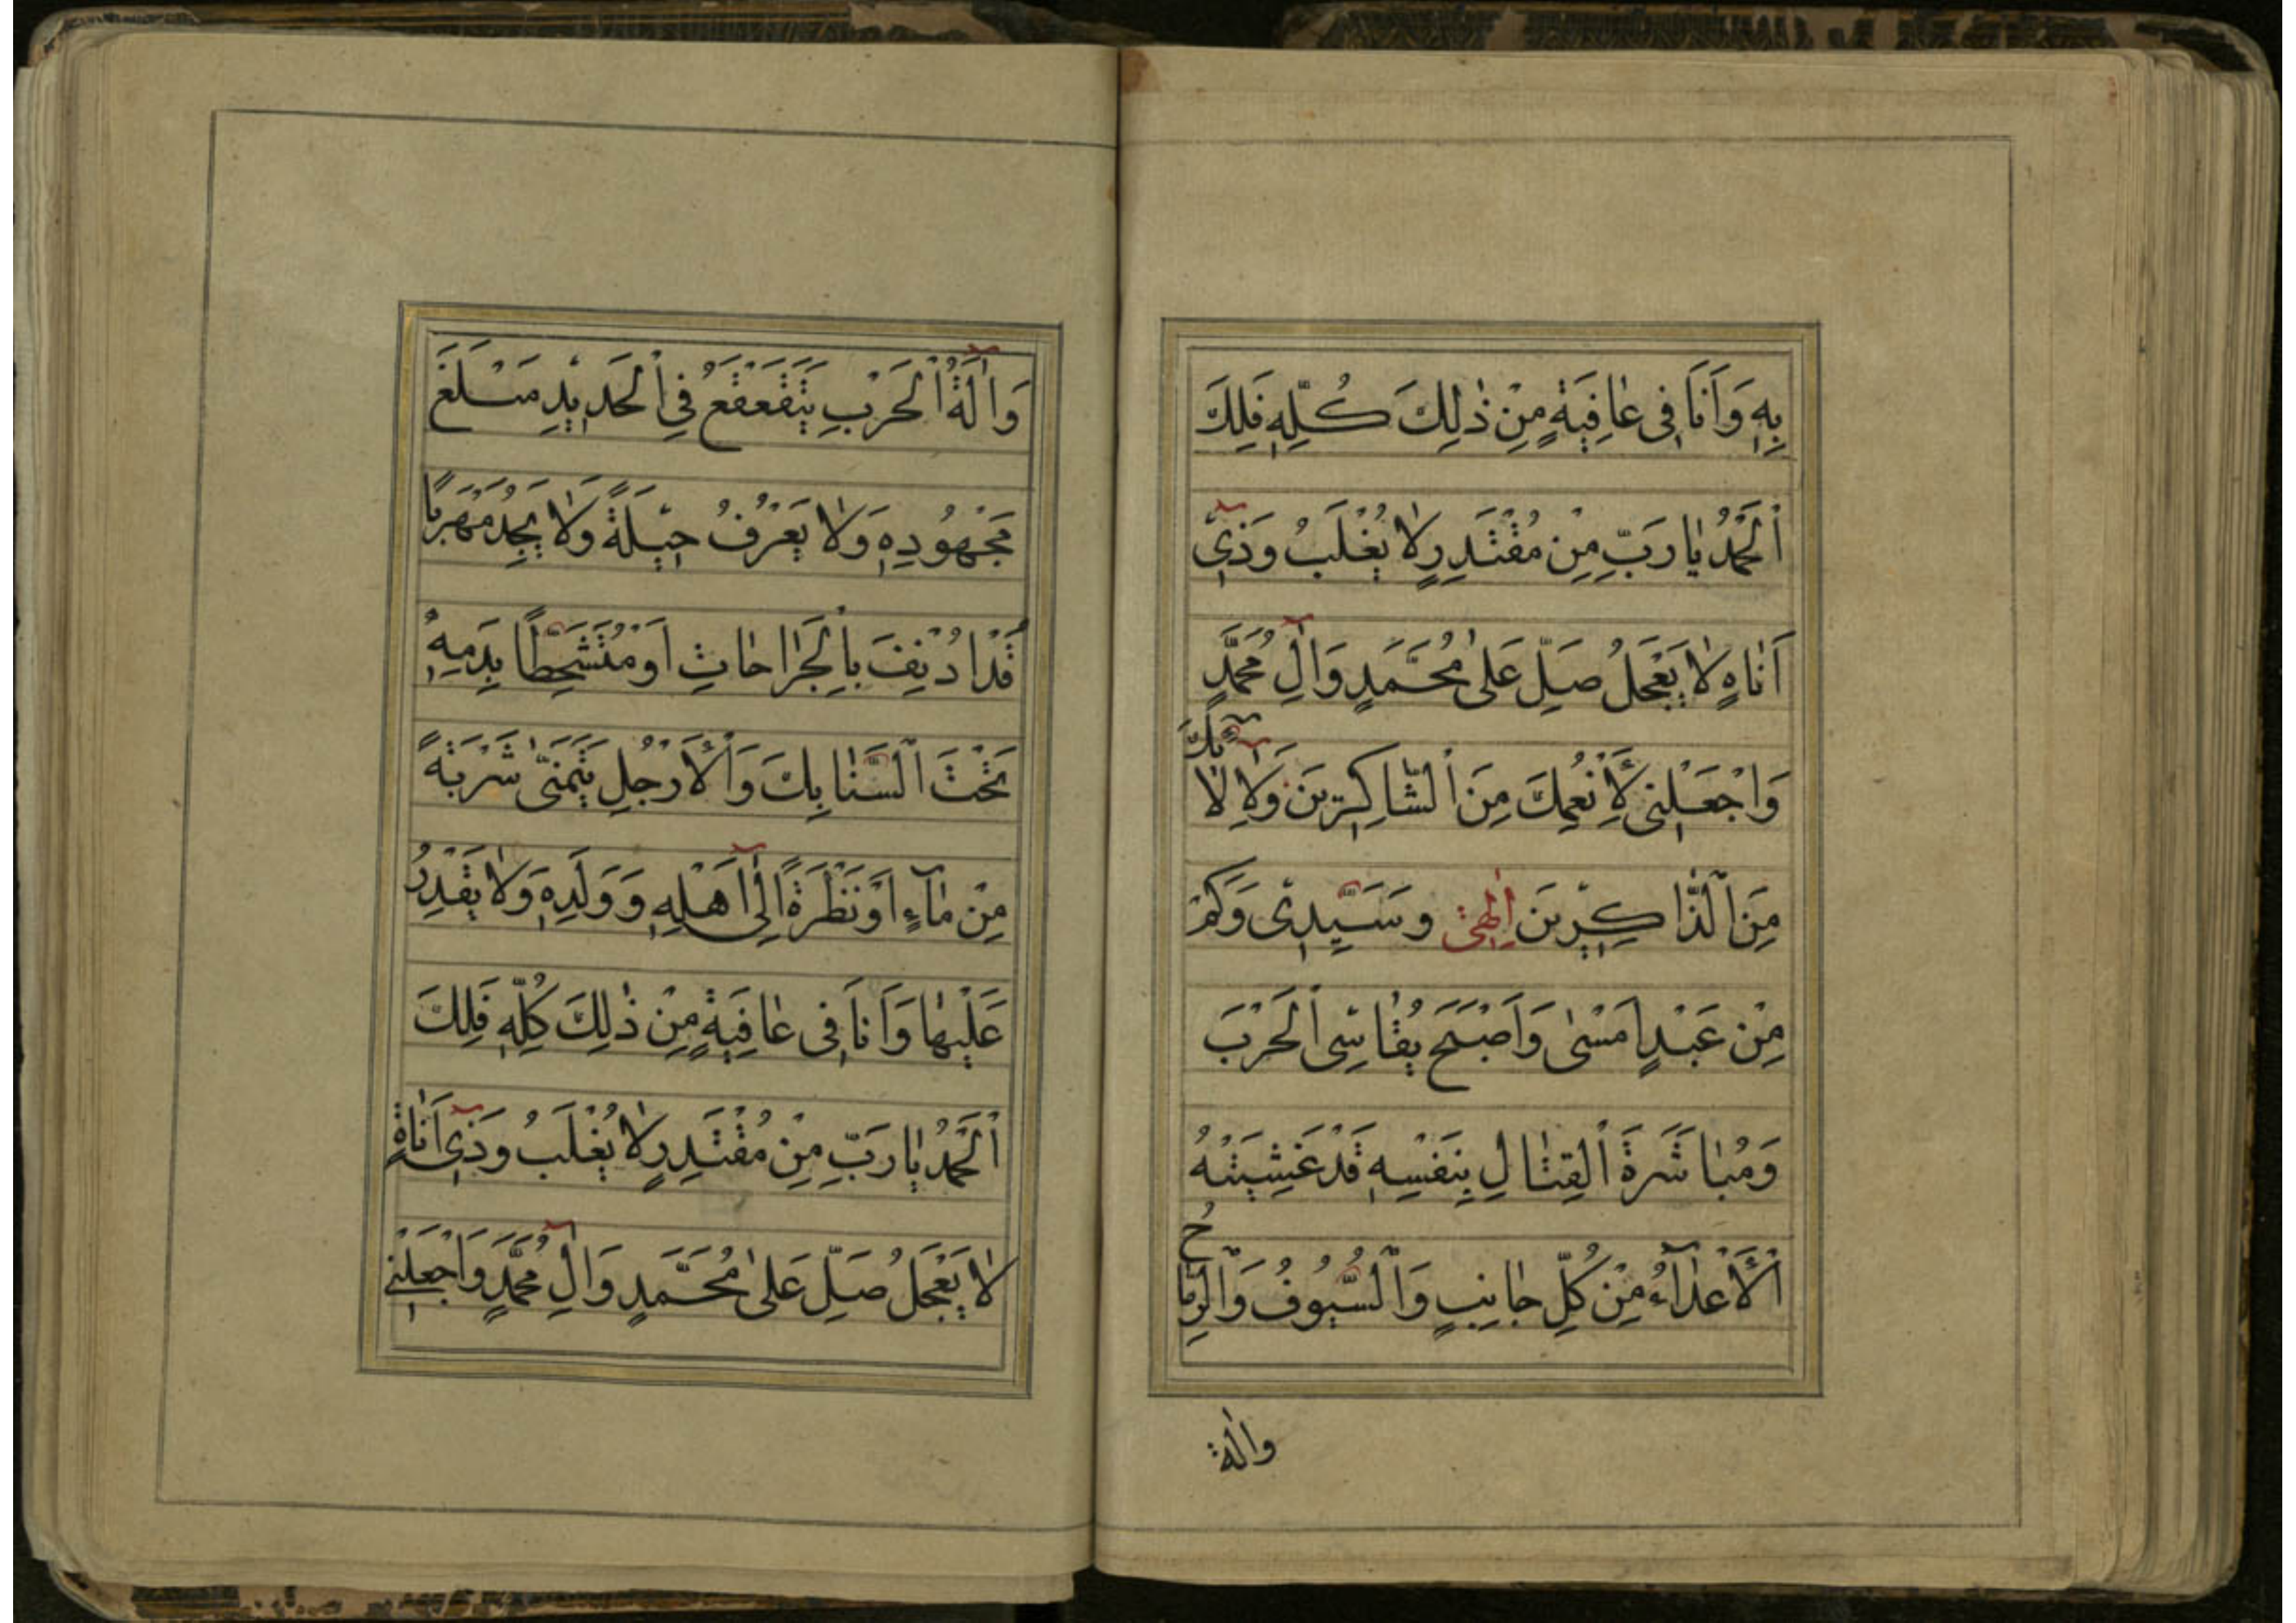 بِهِ وَاَنَا فِي عٰافِيَةٍ مِنْ ذٰلِكَ كُلِّهِ فَلَكَ
اَلْحَمْدُ يٰا رَبِّ مِنْ مُقْتَدِرٍ لٰا يُغْلَبُ وَذِيٓ
اَنٰاةٍ لٰا يَعْجَلُ صَلِّ عَلٰى مُحَمَّدٍ وَاٰلِ مُحَمَّدٍ
وَاجْعَلْنِي لِاَنْعُمِكَ مِنَ الشّٰاكِرِينَ وَلِاٰلٰآئِكَ
مِنَ الذّٰاكِرِينَ اِلٰهِي وَسَيِّدِي وَكَمْ
مِنْ عَبْدٍ اَمْسٰى وَاَصْبَحَ يُقٰاسِي الْحَرْبَ
وَمُبٰاشَرَةَ الْقِتٰالِ بِنَفْسِهِ قَدْ غَشِيَتْهُ
الْاَعْدٰآءُ مِنْ كُلِّ جٰانِبٍ وَالسُّيُوفُ وَالرِّمٰاحُ
واٰلة
وَاٰلَةُ الْحَرْبِ يَتَقَعْقَعُ فِي الْحَدِيْدِ مَبْلَغَ
مَجْهُودِهِ وَلٰا يَعْرِفُ حِيْلَةً وَلٰا يَجِدُ مَهْرَبًا
قَدْ اُدْنِفَ بِالْجَرٰاحٰاتِ اَوْ مُتَشَحِّطًا بِدَمِهِ
تَحْتَ السَّنٰابِكَ وَالْاَرْجُلِ يَتَمَنّٰى شَرْبَةً
مِنْ مٰآءٍ اَوْ نَظْرَةً اِلٰىٓ اَهْلِهِ وَوَلَدِهِ وَلٰا يَقْدِرُ
عَلَيْهٰا وَاَنَا فِي عٰافِيَةٍ مِنْ ذٰلِكَ كُلِّهِ فَلَكَ
اَلْحَمْدُ يٰا رَبِّ مِنْ مُقْتَدِرٍ لٰا يُغْلَبُ وَذِيٓ اَنٰاةٍ
لٰا يَعْجَلُ صَلِّ عَلٰى مُحَمَّدٍ وَاٰلِ مُحَمَّدٍ وَاجْعَلْنِي